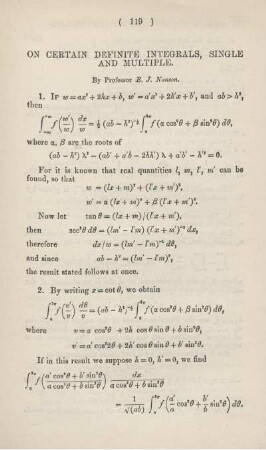 ( 119 )
ON CERTAIN DEFINITE INTEGRALS, SINGLE
AND MULTIPLE.
By Professor E. J. Nanson.
1. IF w = ax² + 2hx + b, w′ = a′x² + 2h′x + b′, and ab > h²,
then
∫₋∞^+∞ f(w′/w) dx/w = ½ (ab − h²)^−½ ∫₀^2π f(α cos²θ + β sin²θ) dθ,
where α, β are the roots of
(ab − h²) λ² − (ab′ + a′b − 2hh′) λ + a′b′ − h′² = 0.
For it is known that real quantities l, m, l′, m′ can be
found, so that
w = (lx + m)² + (l′x + m′)²,
w′ = α (lx + m)² + β (l′x + m′)².
Now let tan θ = (lx + m)/(l′x + m′),
then sec²θ dθ = (lm′ − l′m) (l′x + m′)^−2 dx,
therefore dx/w = (lm′ − l′m)^−1 dθ,
and since ab − h² = (lm′ − l′m)²,
the result stated follows at once.
2. By writing x = cot θ, we obtain
∫₀^2π f(v′/v) dθ/v = (ab − h²)^−½ ∫₀^2π f(α cos²θ + β sin²θ) dθ,
where v = a cos²θ + 2h cos θ sin θ + b sin²θ,
v′ = a′ cos²θ + 2h′ cos θ sin θ + b′ sin²θ.
If in this result we suppose h = 0, h′ = 0, we find
∫₀^2π f(a′ cos²θ + b′ sin²θ / a cos²θ + b sin²θ) dx / a cos²θ + b sin²θ
= 1/√(ab) ∫₀^2π f(a′/a cos²θ + b′/b sin²θ) dθ.